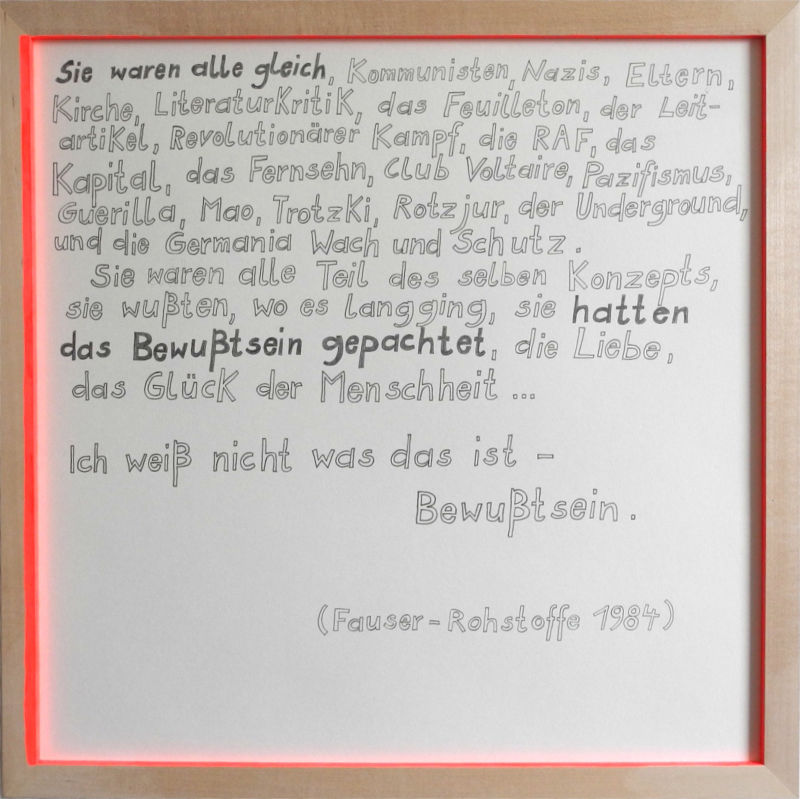 Sie waren alle gleich, Kommunisten, Nazis, Eltern,
Kirche, LiteraturKritiK, das Feuilleton, der Leit-
artiKel, Revolutionärer Kampf, die RAF, das
Kapital, das Fernsehn, Club Voltaire, Pazifismus,
Guerilla, Mao, TrotzKi, Rotzjur, der Underground,
und die Germania Wach und Schutz.
Sie waren alle Teil des selben Konzepts,
sie wußten, wo es langging, sie hatten
das Bewußtsein gepachtet, die Liebe,
das GlücK der Menschheit ...
Ich weiß nicht was das ist -
Bewußtsein.
(Fauser-Rohstoffe 1984)